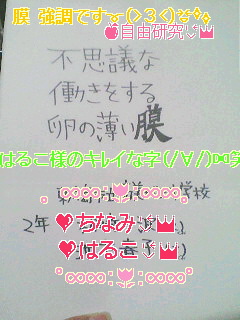 膜 強調です(>3<)
自由研究
不思議な
働きをする
卵の薄い膜
はるこ様のキレイな字(/∀/)
学校
2年
♥ちなみ♥
♥はるこ♥